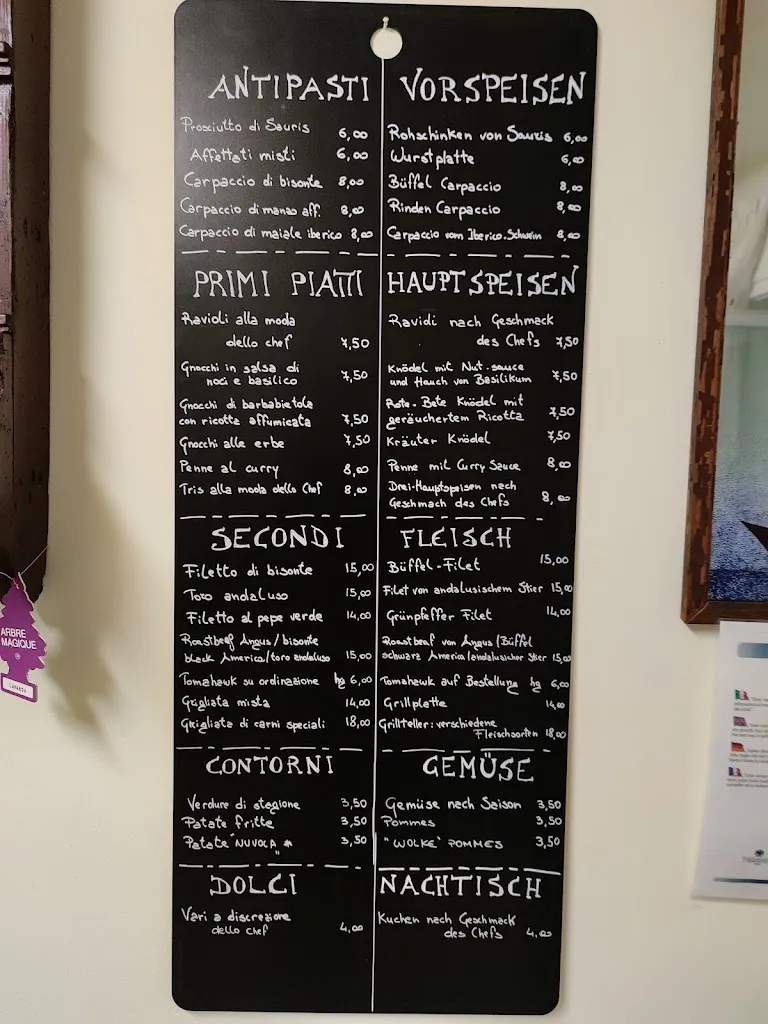 ANTIPASTI
Prosciutto di Sauris 6,00
Affettati misti 6,00
Carpaccio di bisonte 8,00
Carpaccio di manzo aff. 8,00
Carpaccio di maiale iberico 8,00
PRIMI PIATTI
Ravioli alla moda
dello chef 7,50
Gnocchi in salsa di
noci e basilico 7,50
Gnocchi di barbabietola
con ricotta affumicata 7,50
Gnocchi alle erbe 7,50
Penne al curry 8,00
Tris alla moda dello chef 8,00
SECONDI
Filetto di bisonte 15,00
Toro andaluso 15,00
Filetto al pepe verde 14,00
Roastbeef Angus/bisonte
black America/toro andaluso 15,00
Tomahawk su ordinazione hg 6,00
Grigliata mista 14,00
Grigliata di carni speciali 18,00
CONTORNI
Verdure di stagione 3,50
Patate fritte 3,50
Patate "NUVOLA" * 3,50
DOLCI
Vari a discrezione
dello chef 4,00
VORSPEISEN
Rohschinken von Sauris 6,00
Wurstplatte 6,00
Büffel Carpaccio 8,00
Rinden Carpaccio 8,00
Carpaccio vom Iberico-Schwein 8,00
HAUPTSPEISEN
Ravidi nach Geschmack
des Chefs 7,50
Knödel mit Nut-sauce
und Hauch von Basilikum 7,50
Rote-Bete Knödel mit
geräuchertem Ricotta 7,50
Kräuter Knödel 7,50
Penne mit Curry Sauce 8,00
Drei-Hauptspeisen nach
Geschmach des Chefs 8,00
FLEISCH
Büffel-Filet 15,00
Filet von andalusischem Stier 15,00
Grünpfeffer Filet 14,00
Roastbeaf von Angus/Büffel
schwarz America/andalusicher Stier 15,00
Tomahawk auf Bestellung hg 6,00
Grillplatte 14,00
Grillteller: verschiedene
Fleischsorten 18,00
GEMÜSE
Gemüse nach Saison 3,50
Pommes 3,50
"WOLKE" POMMES 3,50
NACHTISCH
Kuchen nach Geschmack
des Chefs 4,00
ARBRE
MAGIQUE